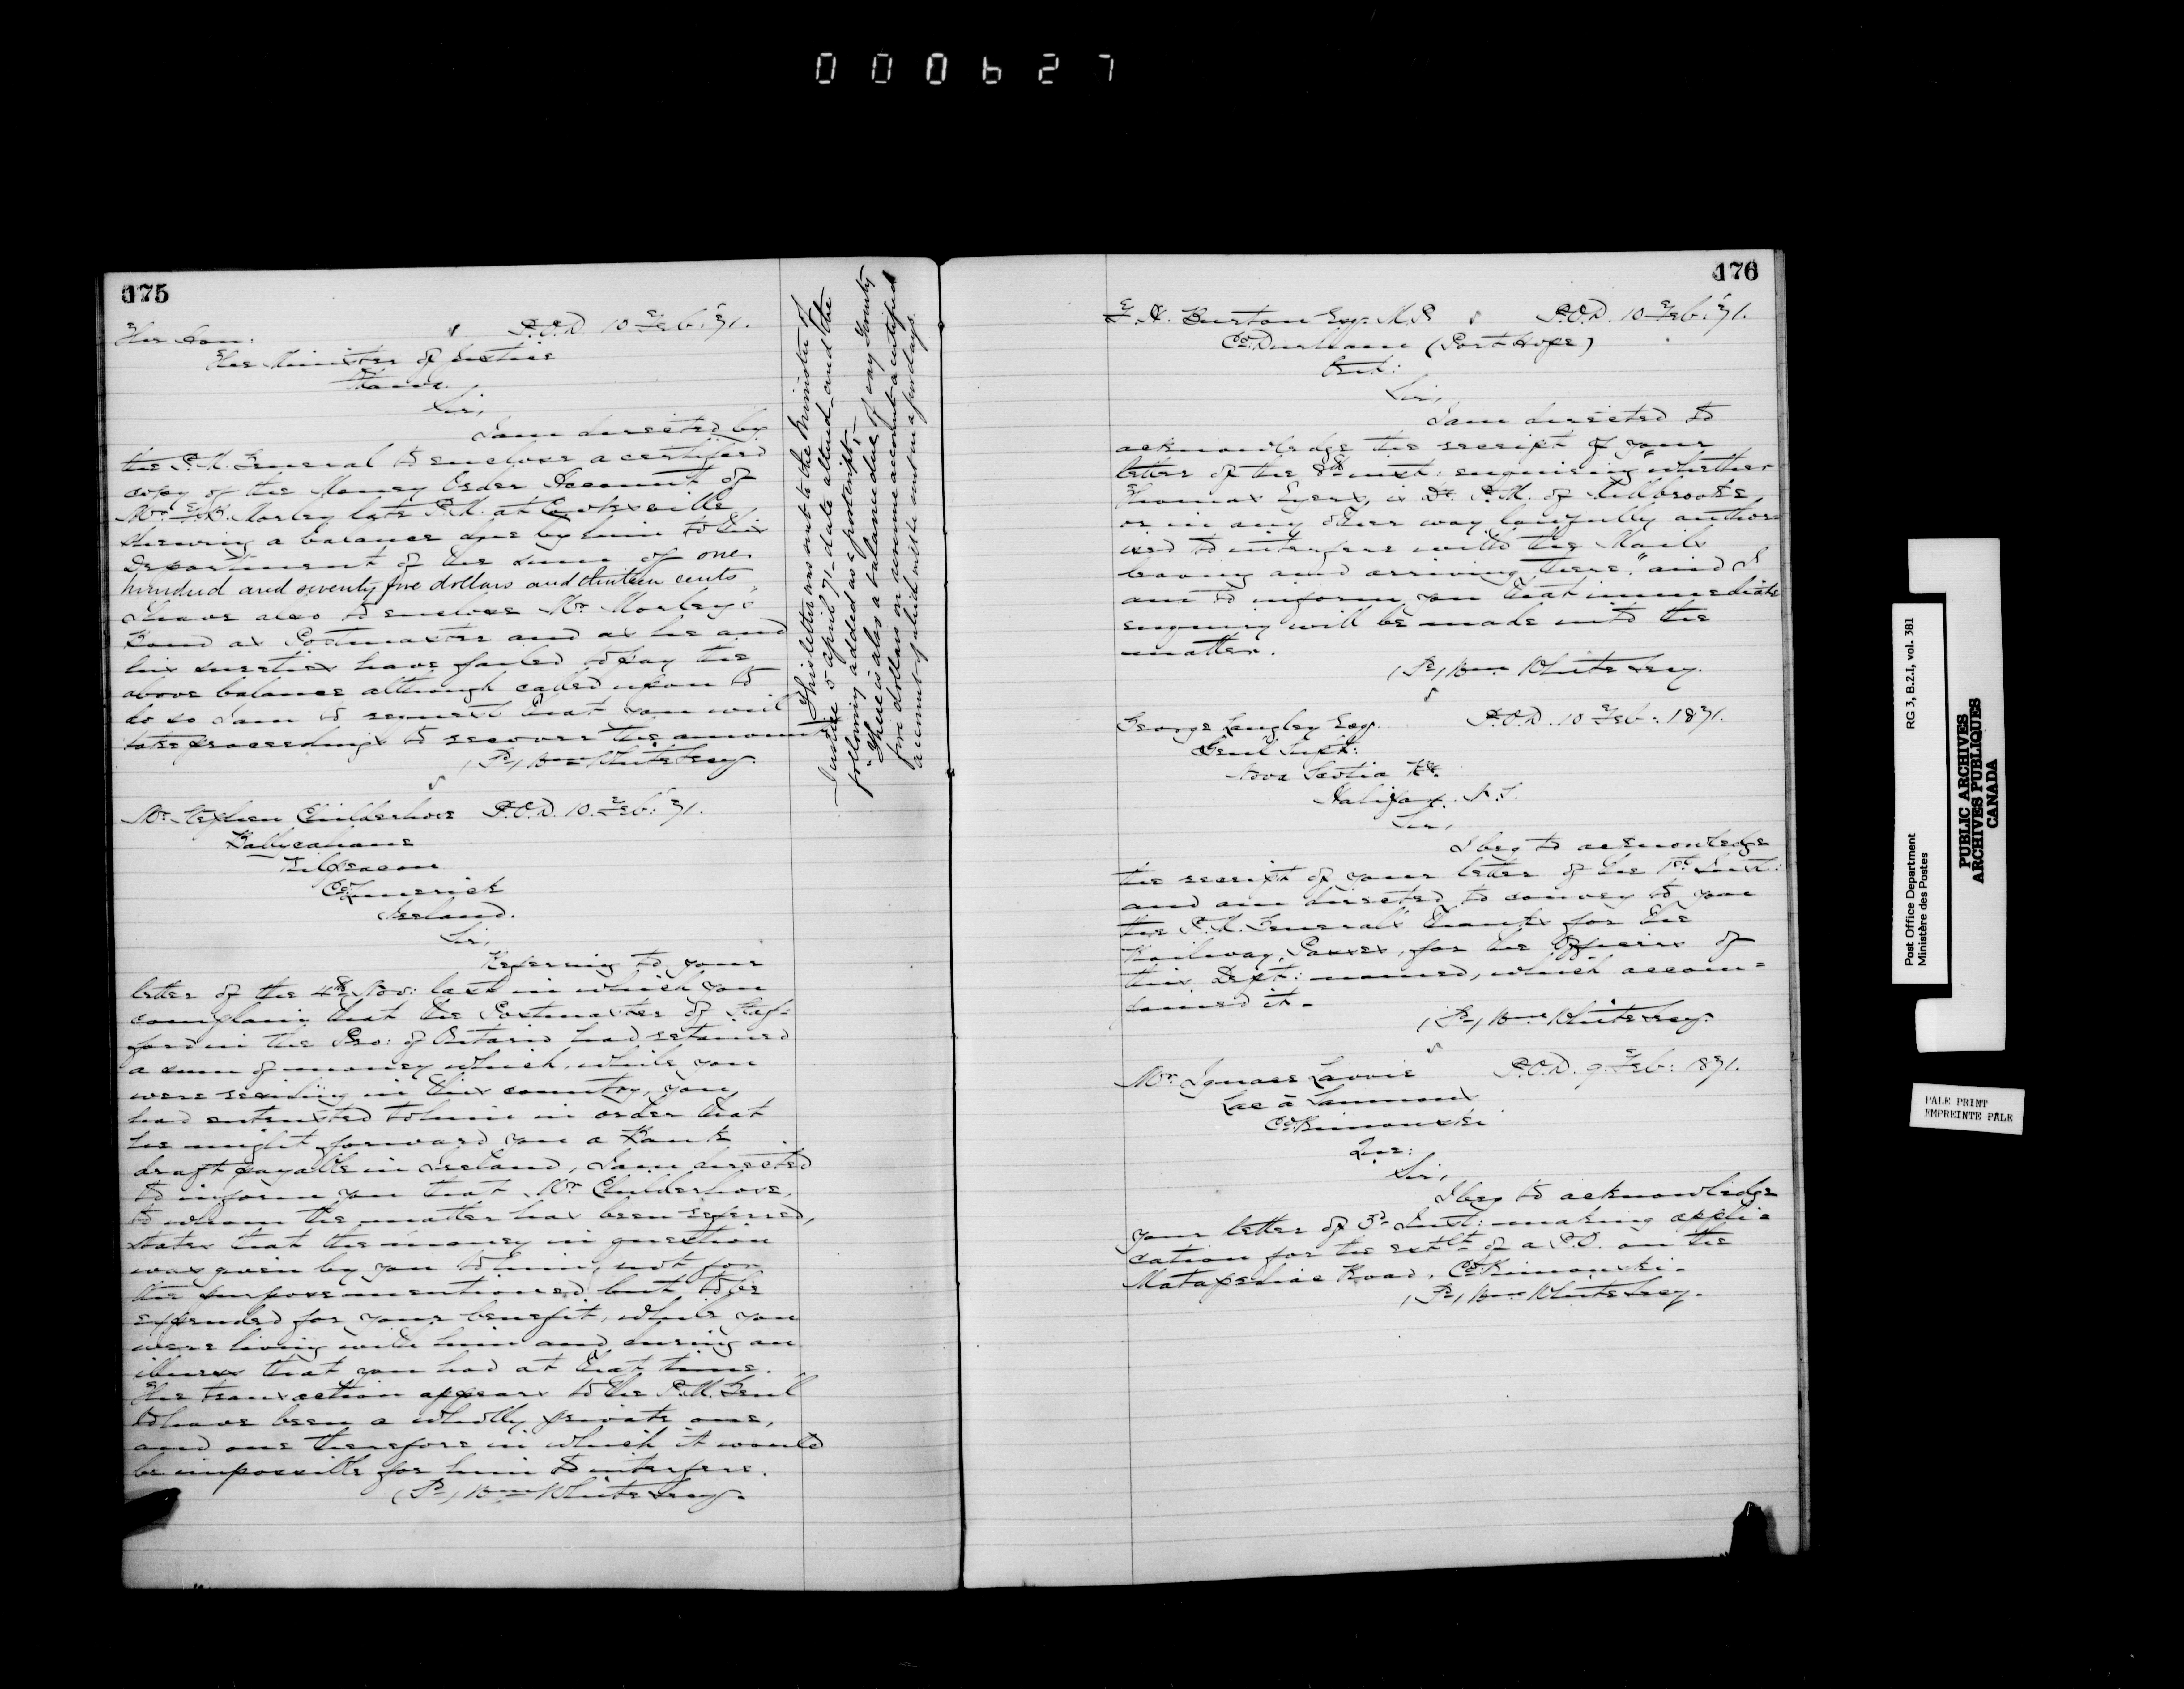 000627
175
The Hon:
P.O.D. 10 Feb: '71.
The Minister of Justice
Ottawa.
Sir,
I am directed by
the P.M. General to enclose a certified
copy of the Money Order Account of
Mr. Morley late P.M. at Cooksville,
shewing a balance due by him to this
Department of the sum of one
hundred and seventy five dollars and thirteen cents.
I have also to enclose Mr Morley's
Bond as Postmaster and as he and
his sureties have failed to pay the
above balance although called upon to
do so I am to request that you will
take proceedings to recover the amount
(Sd) Wm White Secy.
This letter was sent to the Minister of
Justice 5 april 71 - date altered and the
following added as a postscript;-
"There is also a balance due of say twenty
five dollars on revenue account a certified
account of which will be sent in a few days.
Mr Stephen Childerhose P.O.D. 10. Feb: '71.
Ballycahane
Kilpeacon
Co: Limerick
Ireland.
Sir,
Referring to your
letter of the 4th Nov: last in which you
complain that the Postmaster of Staf-
ford in the Pro: of Ontario had retained
a sum of money which, while you
were residing in this country, you
had entrusted to him in order that
he might forward you a Bank
draft payable in Ireland, I am directed
to inform you that Mr Childerhose,
to whom the matter has been referred,
states that the money in question
was given by you to him, not for
the purpose mentioned but to be
expended for your benefit, while you
were living with him and during an
illness that you had at that time.
The transaction appears to the P.M. Genl
to have been a wholly private one,
and one therefore in which it would
be impossible for him to interfere.
(Sd) Wm White Secy.
176
F. H. Burton Esq. M.P. P.O.D. 10 Feb: '71.
Co: Durham (Port Hope)
Ont:
Sir,
I am directed to
acknowledge the receipt of your
letter of the 8th inst: enquiring "whether
Thomas Syers, is Dy. P.M. of Millbrooke,
or in any other way lawfully author-
ised to interfere with the Mails
leaving and arriving there," and I
am to inform you that immediate
enquiry will be made into the
matter.
(Sd) Wm White Secy.
George Langley Esq. P.O.D. 10 Feb: 1871.
Genl Supt:
Nova Scotia Ry.
Halifax. N.S.
Sir,
I beg to acknowledge
the receipt of your letter of the 1st Inst:
and am directed to convey to you
the P.M. General's thanks for the
Railway Passes, for the Officers of
this Dept: named, which accom-
panied it.
(Sd) Wm White Secy.
Mr. Ignace Lavoie P.O.D. 9 Feb: 1871.
Lac à Saumon
Co: Rimouski
Que:
Sir,
I beg to acknowledge
your letter of 3d Inst: making appli-
cation for the estbt of a P.O. on the
Matapediac Road, Co: Rimouski.
(Sd) Wm White Secy.
Post Office Department RG 3, B.2.1, vol. 381
Ministère des Postes
PUBLIC ARCHIVES
ARCHIVES PUBLIQUES
CANADA
PALE PRINT
EMPREINTE PÂLE